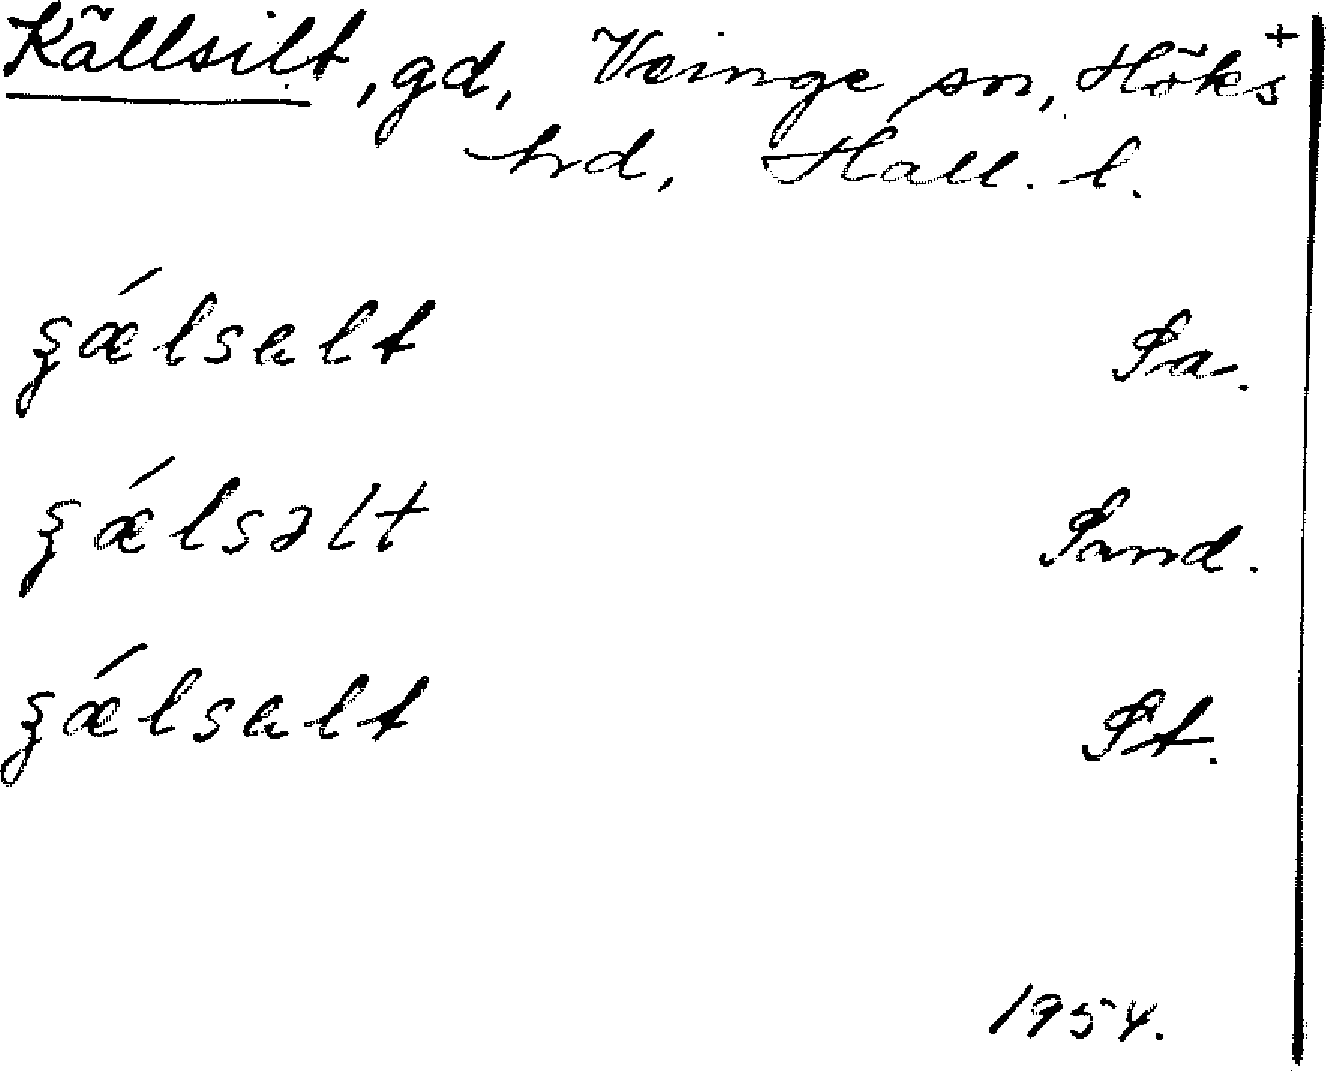 Källsilt, gd, Veinge sn, Höks +
hrd, Hall. l.
ʂǽlsalt Pa.
ʂǽlsəlt Pand.
ʂǽlsalt Pt.
1954.